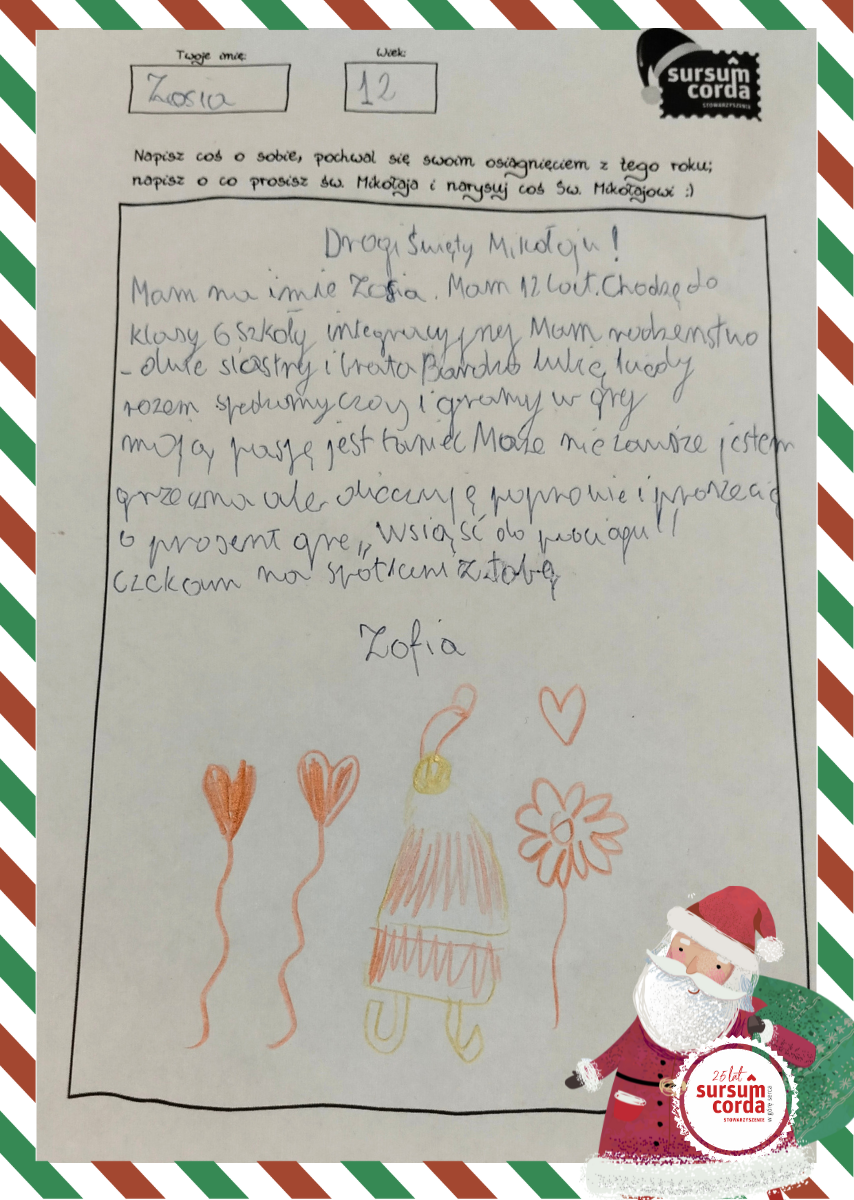 Twoje imię:
Wiek:
Zosia
12
sursum
corda
STOWARZYSZENIE
Napisz coś o sobie, pochwal się swoim osiągnięciem z tego roku;
napisz o co prosisz św. Mikołaja i narysuj coś Św. Mikołajowi :)
Drogi Święty Mikołaju!
Mam na imie Zofia. Mam 12 lat. Chodzę do
klasy 6 szkoły integracyjnej Mam rodzenstwo
- dwie siostry i brata Bardzo lubię kiedy
razem spędzamy czas i gramy w gry
moją pasją jest taniec Może nie zawsze jestem
grzeczna ale obiecuję poprawie i proszę cię
o prezent grę "Wsiąść do pociągu"
czekam na spotkani z tobą
Zofia
25 lat
sursum
corda
STOWARZYSZENIE
w górę serca